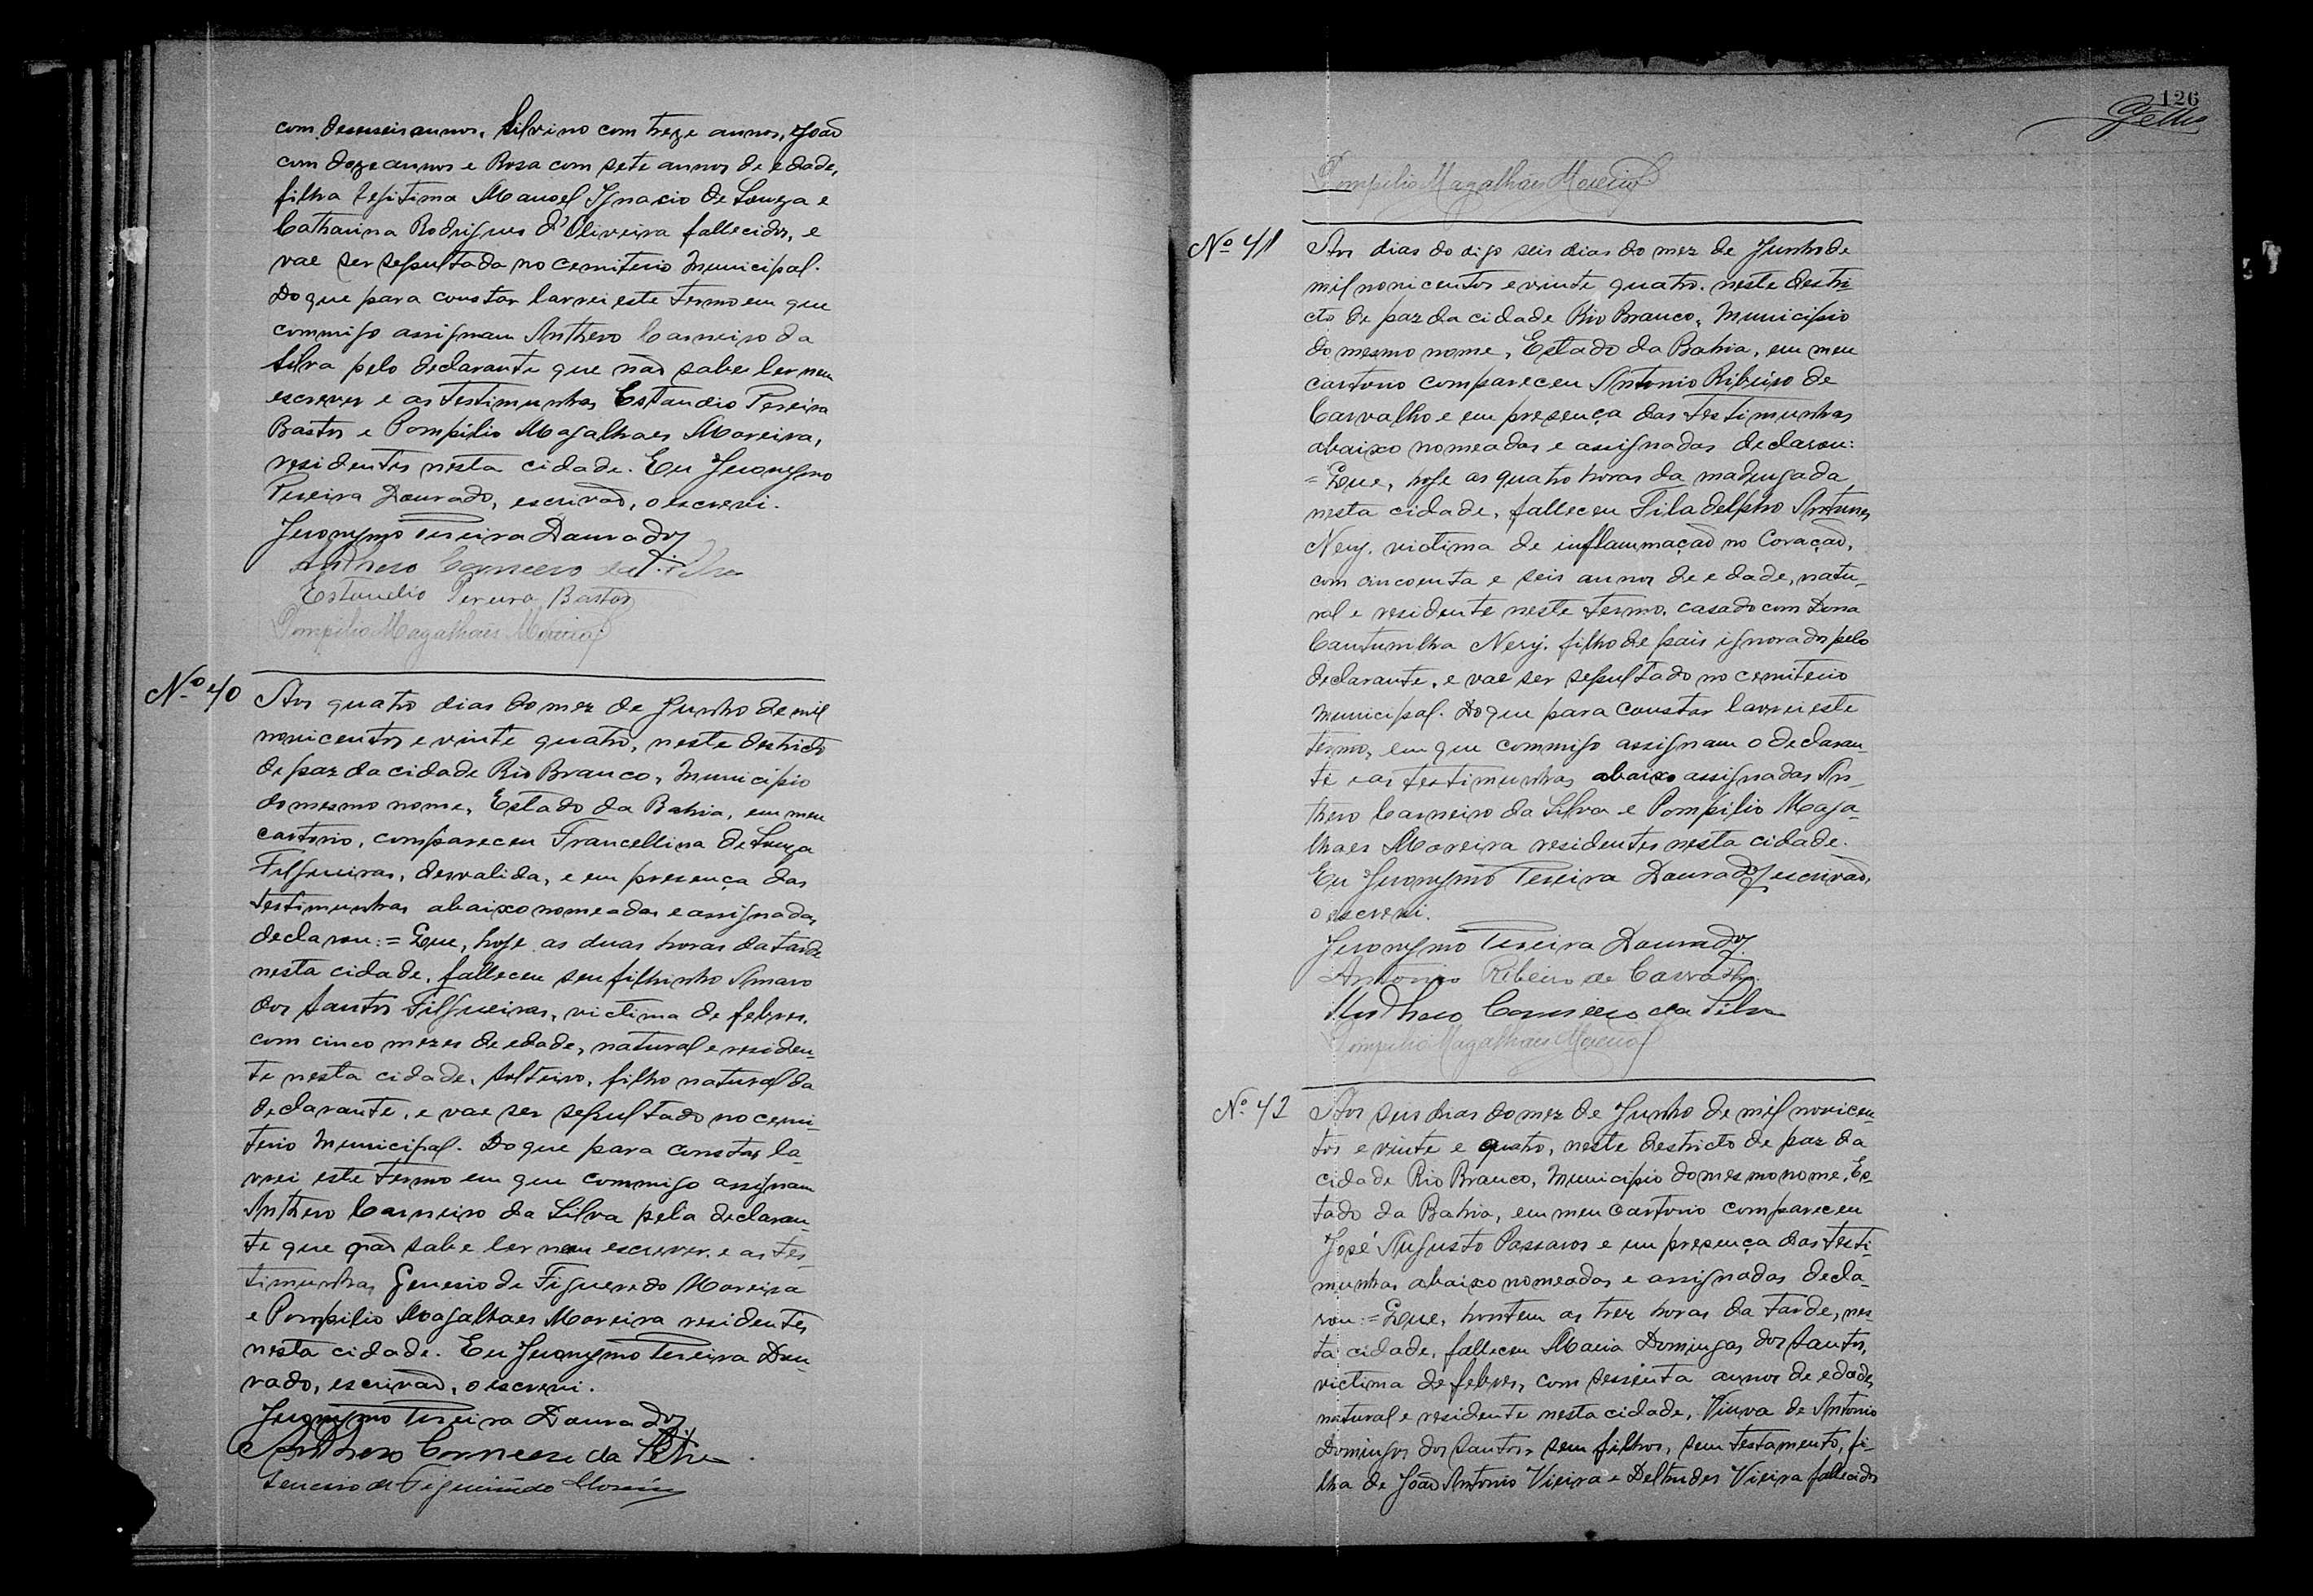 com deseseis annos, Silvino com treze annos, João
com doze annos e Rosa com sete annos de edade,
filha legitima Manoel Ignacio de Souza e
Catharina Rodrigues d'Oliveira fallecidos, e
vae ser sepultada no cemiterio Municipal.
Do que para constar lavrei este termo em que
commigo assignam Anthero Carneiro da
Silva pelo declarante que não sabe ler nem
escrever e as testimunhas Estaudio Pereira
Bastos e Pompilio Magalhaes Moreira,
residentes nesta cidade. Eu Jeronymo
Pereira Dourado, escrivão, o escrevi.
Jeronymo Pereira Dourado
Anthero Carneiro da Silva
Estaudio Pereira Bastos
Pompilio Magalhães Moreira
Nº 40
Aos quatro dias do mez de Junho de mil
novicentos e vinte quatro, neste destricto
de paz da cidade Rio Branco, Municipio
do mesmo nome, Estado da Bahia, em meu
cartorio, compareceu Francellina de Souza
Filgueiras, desvalida, e em presença das
testimunhas abaixo nomeadas e assignadas,
declarou: = Que, hoje as duas horas da tarde
nesta cidade, falleceu seu filhinho Amaro
dos Santos Filgueiras, victima de febres,
com cinco mezes de edade, natural e residen-
te nesta cidade, solteiro, filho natural da
declarante, e vae ser sepultado no cemi-
terio Municipal. Do que para constar la-
vrei este termo em que commigo assignam
Anthero Carneiro da Silva pela declaran-
te que não sabe ler nem escrever e as tes-
timunhas Genesio de Figueredo Moreira
e Pompilio Magalhaes Moreira residentes
nesta cidade. Eu Jeronymo Pereira Dou-
rado, escrivão, o escrevi.
Jeronymo Pereira Dourado
Anthero Carneiro da Silva
Genesio de Figueirêdo Moreira
126
Pompilio Magalhães Moreira
Nº 41
Aos dias do digo seis dias do mez de Junho de
mil novicentos e vinte quatro. neste destri-
cto de paz da cidade Rio Branco, Municipio
do mesmo nome, Estado da Bahia, em meu
cartorio compareceu Antonio Ribeiro de
Carvalho e em presença das testimunhas
abaixo nomeadas e assignadas declarou:
= Que, hoje as quatro horas da madrugada
nesta cidade, falleceu Filadelpho Antunes
Nery, victima de inflammação no Coração,
com cincoenta e seis annos de edade, natu-
ral e residente neste termo, casado com Dona
Cantumilha Nery. filho de pais ignorados pelo
declarante, e vae ser sepultado no cemiterio
Municipal. Do que para constar lavrei este
termo, em que commigo assignam o declaran-
te e as testimunhas abaixo assignadas An-
thero Carneiro da Silva e Pompilio Maga-
lhaes Moreira residentes nesta cidade.
Eu Jeronymo Pereira Dourado, escrivão,
o escrevi.
Jeronymo Pereira Dourado
Antonio Ribeiro de Carvalho
Anthero Carneiro da Silva
Pompilio Magalhães Moreira
Nº 42
Aos seis dias do mez de Junho de mil novicen-
tos e vinte e quatro, neste destricto de paz da
cidade Rio Branco, Municipio do mesmo nome, Es-
tado da Bahia, em meu cartorio compareceu
José Augusto Passaros e em presença das testi-
munhas abaixo nomeadas e assignadas decla-
rou: = Que, hontem as trez horas da tarde, nes-
ta cidade, falleceu Maria Domingas dos Santos,
victima de febres, com sessenta annos de edade,
natural e residente nesta cidade, Viuva de Antonio
Domingos dos Santos, sem filhos, sem testamento, fi-
lha de João Antonio Vieira e Deltrudes Vieira fallecidos